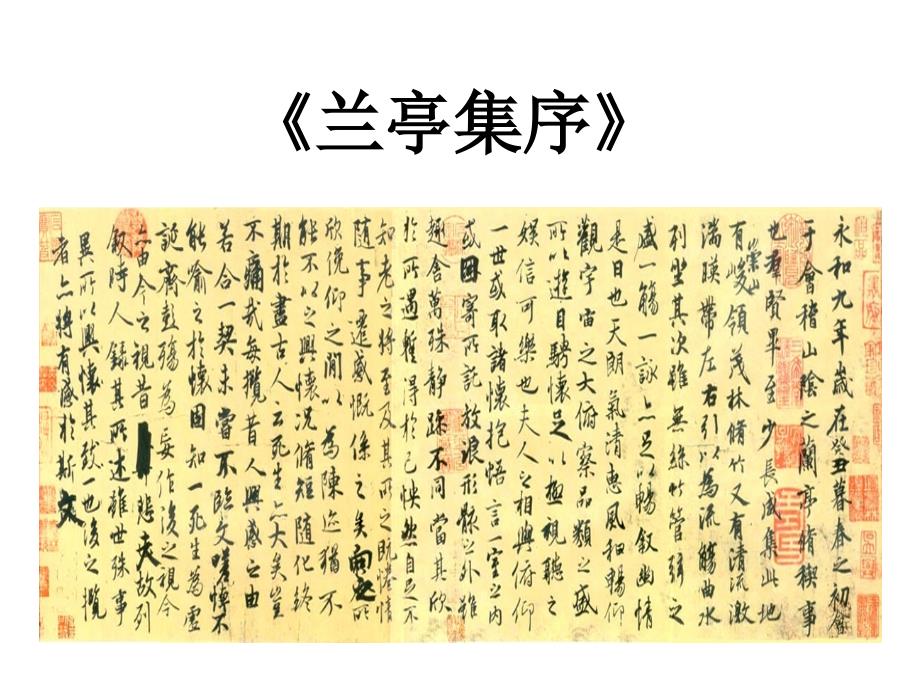 《兰亭集序》
永和九年歲在癸丑暮春之初會
于會稽山陰之蘭亭脩稧事
也羣賢畢至少長咸集此地
有崇山峻領茂林脩竹又有清流激
湍暎帶左右引以為流觴曲水
列坐其次雖無絲竹管弦之
盛一觴一詠亦足以暢敘幽情
是日也天朗氣清惠風和暢仰
觀宇宙之大俯察品類之盛
所以遊目騁懷足以極視聽之
娛信可樂也夫人之相與俯仰
一世或取諸懷抱悟言一室之內
或因寄所託放浪形骸之外雖
趣舍萬殊靜躁不同當其欣
於所遇暫得於己怏然自足不
知老之將至及其所之既惓情
隨事遷感慨係之矣向之所
欣俛仰之間以為陳迹猶不
能不以之興懷況脩短隨化終
期於盡古人云死生亦大矣豈
不痛哉每攬昔人興感之由
若合一契未嘗不臨文嗟悼不
能喻之於懷固知一死生為虛
誕齊彭殤為妄作後之視今
亦由今之視昔悲夫故列
敘時人錄其所述雖世殊事
異所以興懷其致一也後之攬
者亦將有感於斯文